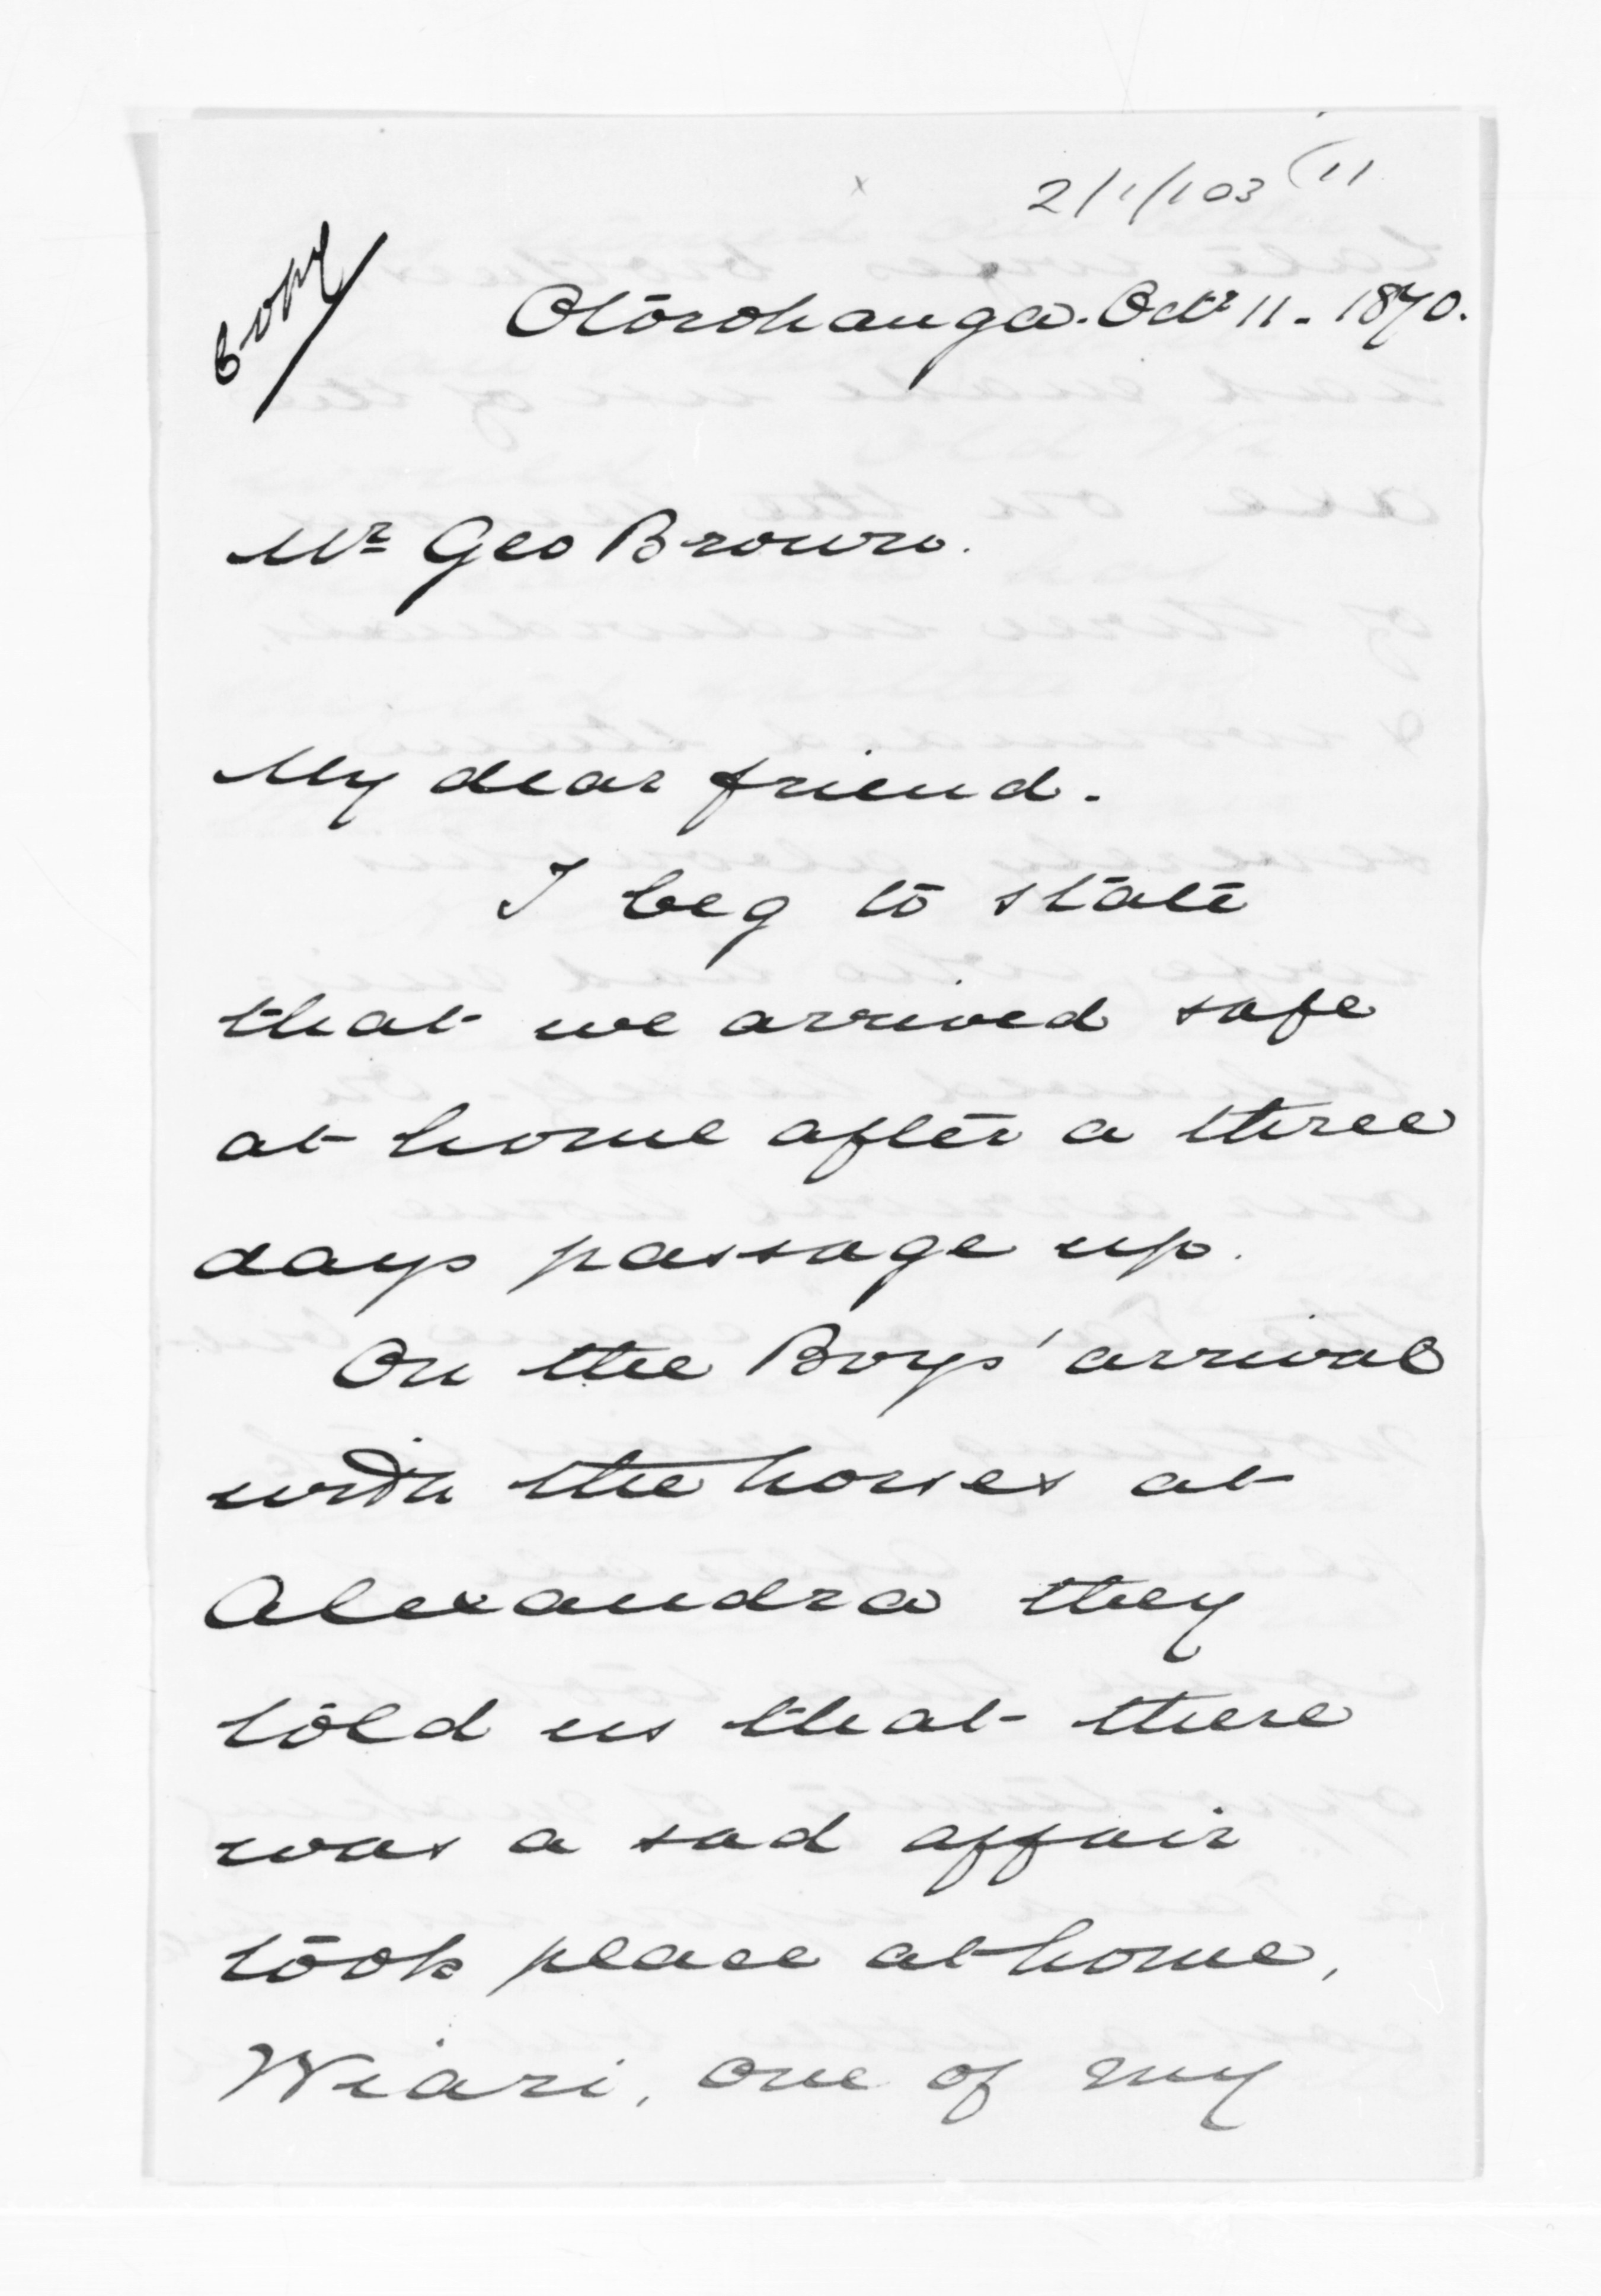 2/1/103 (11
Copy
Otorohanga. Octr 11 - 1870.
Mr Geo Brown.
My dear friend.
I beg to state
that we arrived safe
at home after a three
days passage up.
On the Boys' arrival
with the horses at
Alexandra they
told us that there
was a sad affair
took place at home,
Wiari, one of my